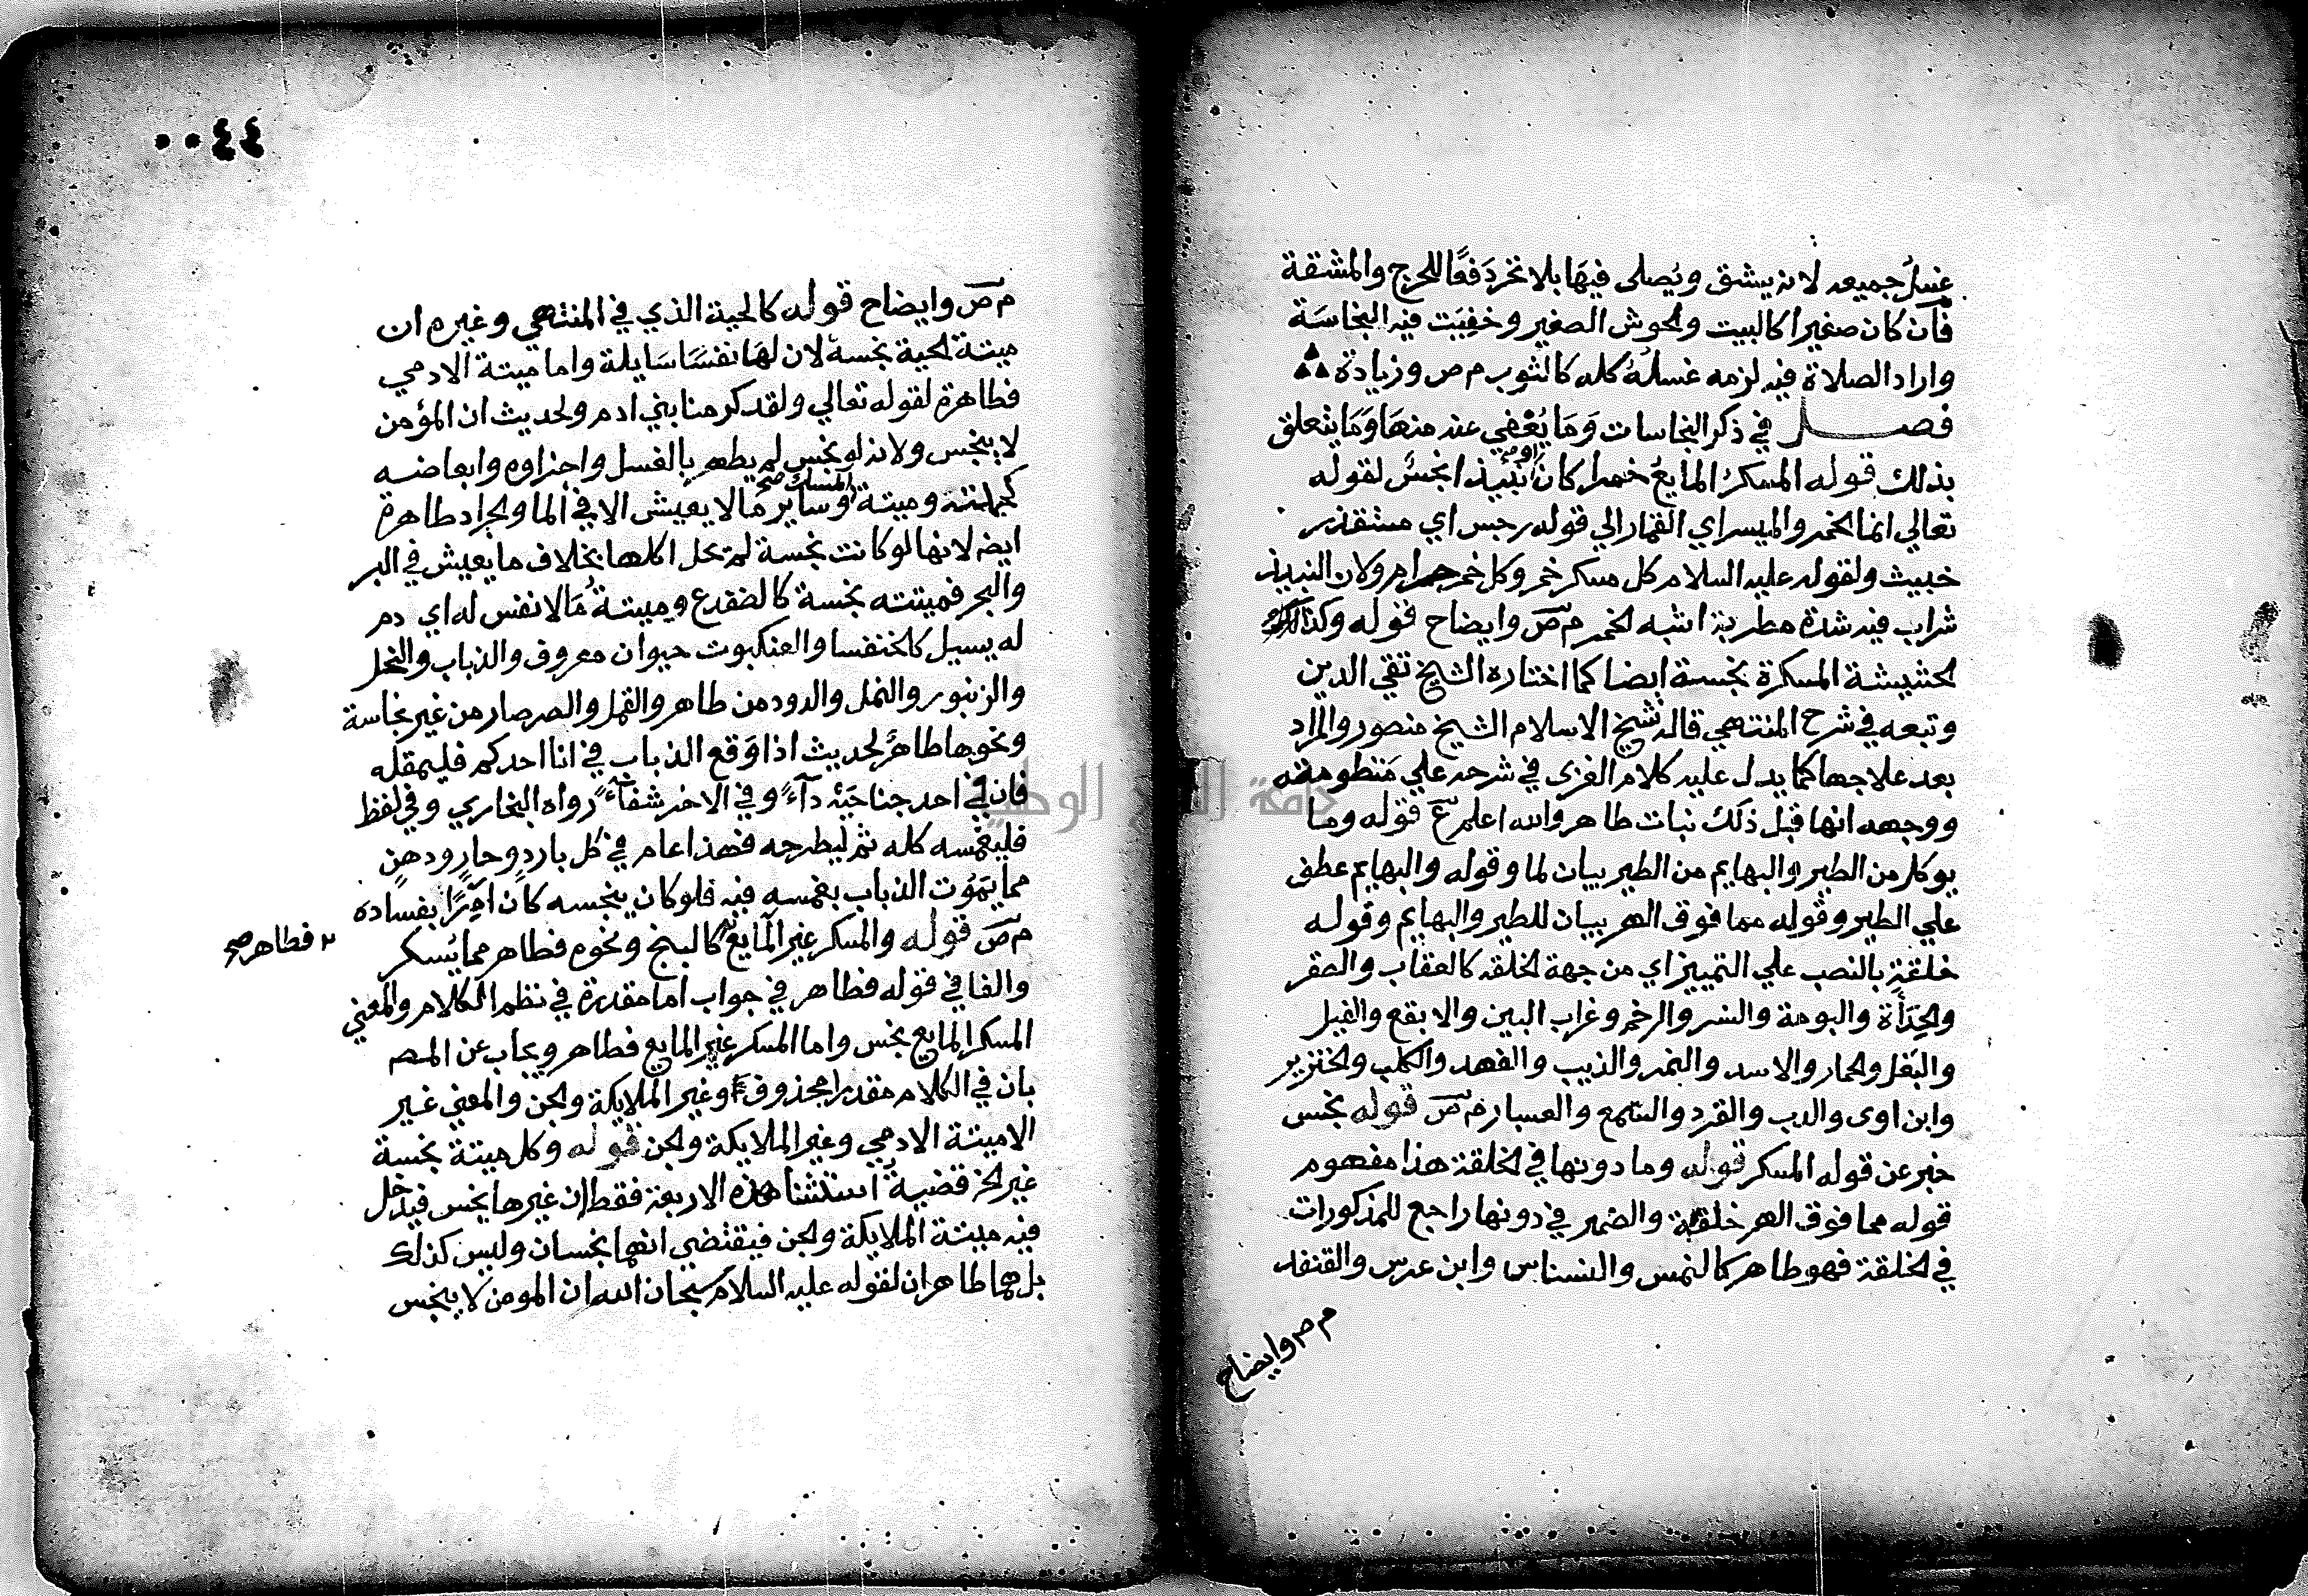 غسل جميعه لانه يشق ويُصلى فيهَا بلا تحر دَفعًا للحرج والمشقة
فان كان صغيرا كالبيت والحوش الصغير وخفِيَت فيه النجاسَة
واراد الصلاة فيه لزمه غسلُهُ كله كالثوب م ص وزيادة
فصل في ذكر النجاسات وَمَا يُعْفي عنه منهَا وَمَا يتعلق
بذلك قوله المسكرُ المايعُ خمرا كان او نبيذا نجسٌ لقوله
تعالي انما الخمر والميسر اي القمار الي قوله رجس اي مستقذر
خبيث ولقوله عليه السلام كل مسكر خمر وكل خمر حرام ولان النبيذ
شراب فيه شدة مطربة اشبه الخمر م ص وايضاح قوله وكذا
الحشيشة المسكرة نجسة ايضا كما اختاره الشيخ تقي الدين
وتبعه في شرح المنتهي قاله شيخ الاسلام الشيخ منصور والمراد
بعد علاجها كما يدل عليه كلام الغزى في شرحه علي منظومته
ووجهه انها قبل ذلك نبات طاهر والله اعلم ع قوله وما
يوكل من الطير والبهايم من الطير بيان لما وقوله والبهايم عطف
علي الطير وقوله مما فوق الهر بيان للطير والبهايم وقوله
خلقةٍ بالنصب علي التمييز اي من جهة الخلقة كالعقاب والصقر
والحِدَأَة والبومة والنسر والرخم وغراب البين والابقع والفيل
والبغل والحمار والاسد والنمر والذيب والفهد والكلب والخنزير
وابن اوى والدب والقرد والسمع والعسبار م ص قوله نجس
خبر عن قوله المسكر قوله وما دونها في الخلقة هذا مفهوم
قوله مما فوق الهر خلقة والضمير في دونها راجع للمذكورات
في الخلقة فهو طاهر كالنمس والنسناس وابن عرس والقنفد
م ص وايضاح
٠٠٤٤
م ص وايضاح قوله كالحية الذي في المنتهي وغيره ان
ميتة الحية نجسة لان لهَا نفسًا سَايلة واما ميتة الادمي
فطاهرة لقوله تعالي ولقد كرمنا بني ادم ولحديث ان المؤمن
لا ينجس ولانه لو نجس لم يطهر بالغسل واجزاوه وابعاضه
كجملته وميتة السمك صح وساير مَا لا يعيش الا في الما والجراد طاهرة
ايضه لانها لو كانت نجسة لم تحل اكلها بخلاف ما يعيش في البر
والبحر فميتته نجسة كالضفدع وميتةُ مَا لا نفس له اي دم
له يسيل كالخنفسا والعنكبوت حيوان معروف والذباب والنحل
والزنبور والنمل والدود من طاهر والقمل والصرصار من غير نجاسة
ونحوها طاهر لحديث اذا وَقع الذباب في انا احدكم فليمقله
فان في احد جناحَيْه دآءً وفي الاخر شفآءً رواه البخاري وفي لفظ
فليغمسه كله ثم ليطرحه فهذا عام في كل باردٍ وحارٍ ودهنٍ
مما يَمُوت الذباب بغمسه فيه فلو كان ينجسه كان امرًا بفساده
م ص قوله والمسكر غير المايع كالبنج ونحوه فطاهر مما يُسكر
٢ فطاهر صح
والفا في قوله فطاهر في جواب اما مقدرة في نظم الكلام والمعني
المسكر المايع نجس واما المسكر غير المايع فطاهر ويجاب عن المص
بان في الكلام مقدرا محذوفا وغير الملايكة والجن والمعني غير
الاميتة الادمي وغير الملايكة والجن قوله وكل ميتة نجسة
غير الخ قضيةُ استثنا هذه الاربعة فقط ان غيرها نجس فيدخل
فيه ميتة الملايكة والجن فيقتضي انهما نجسان وليس كذلك
بل هما طاهران لقوله عليه السلام سبحان الله ان المومن لا ينجس